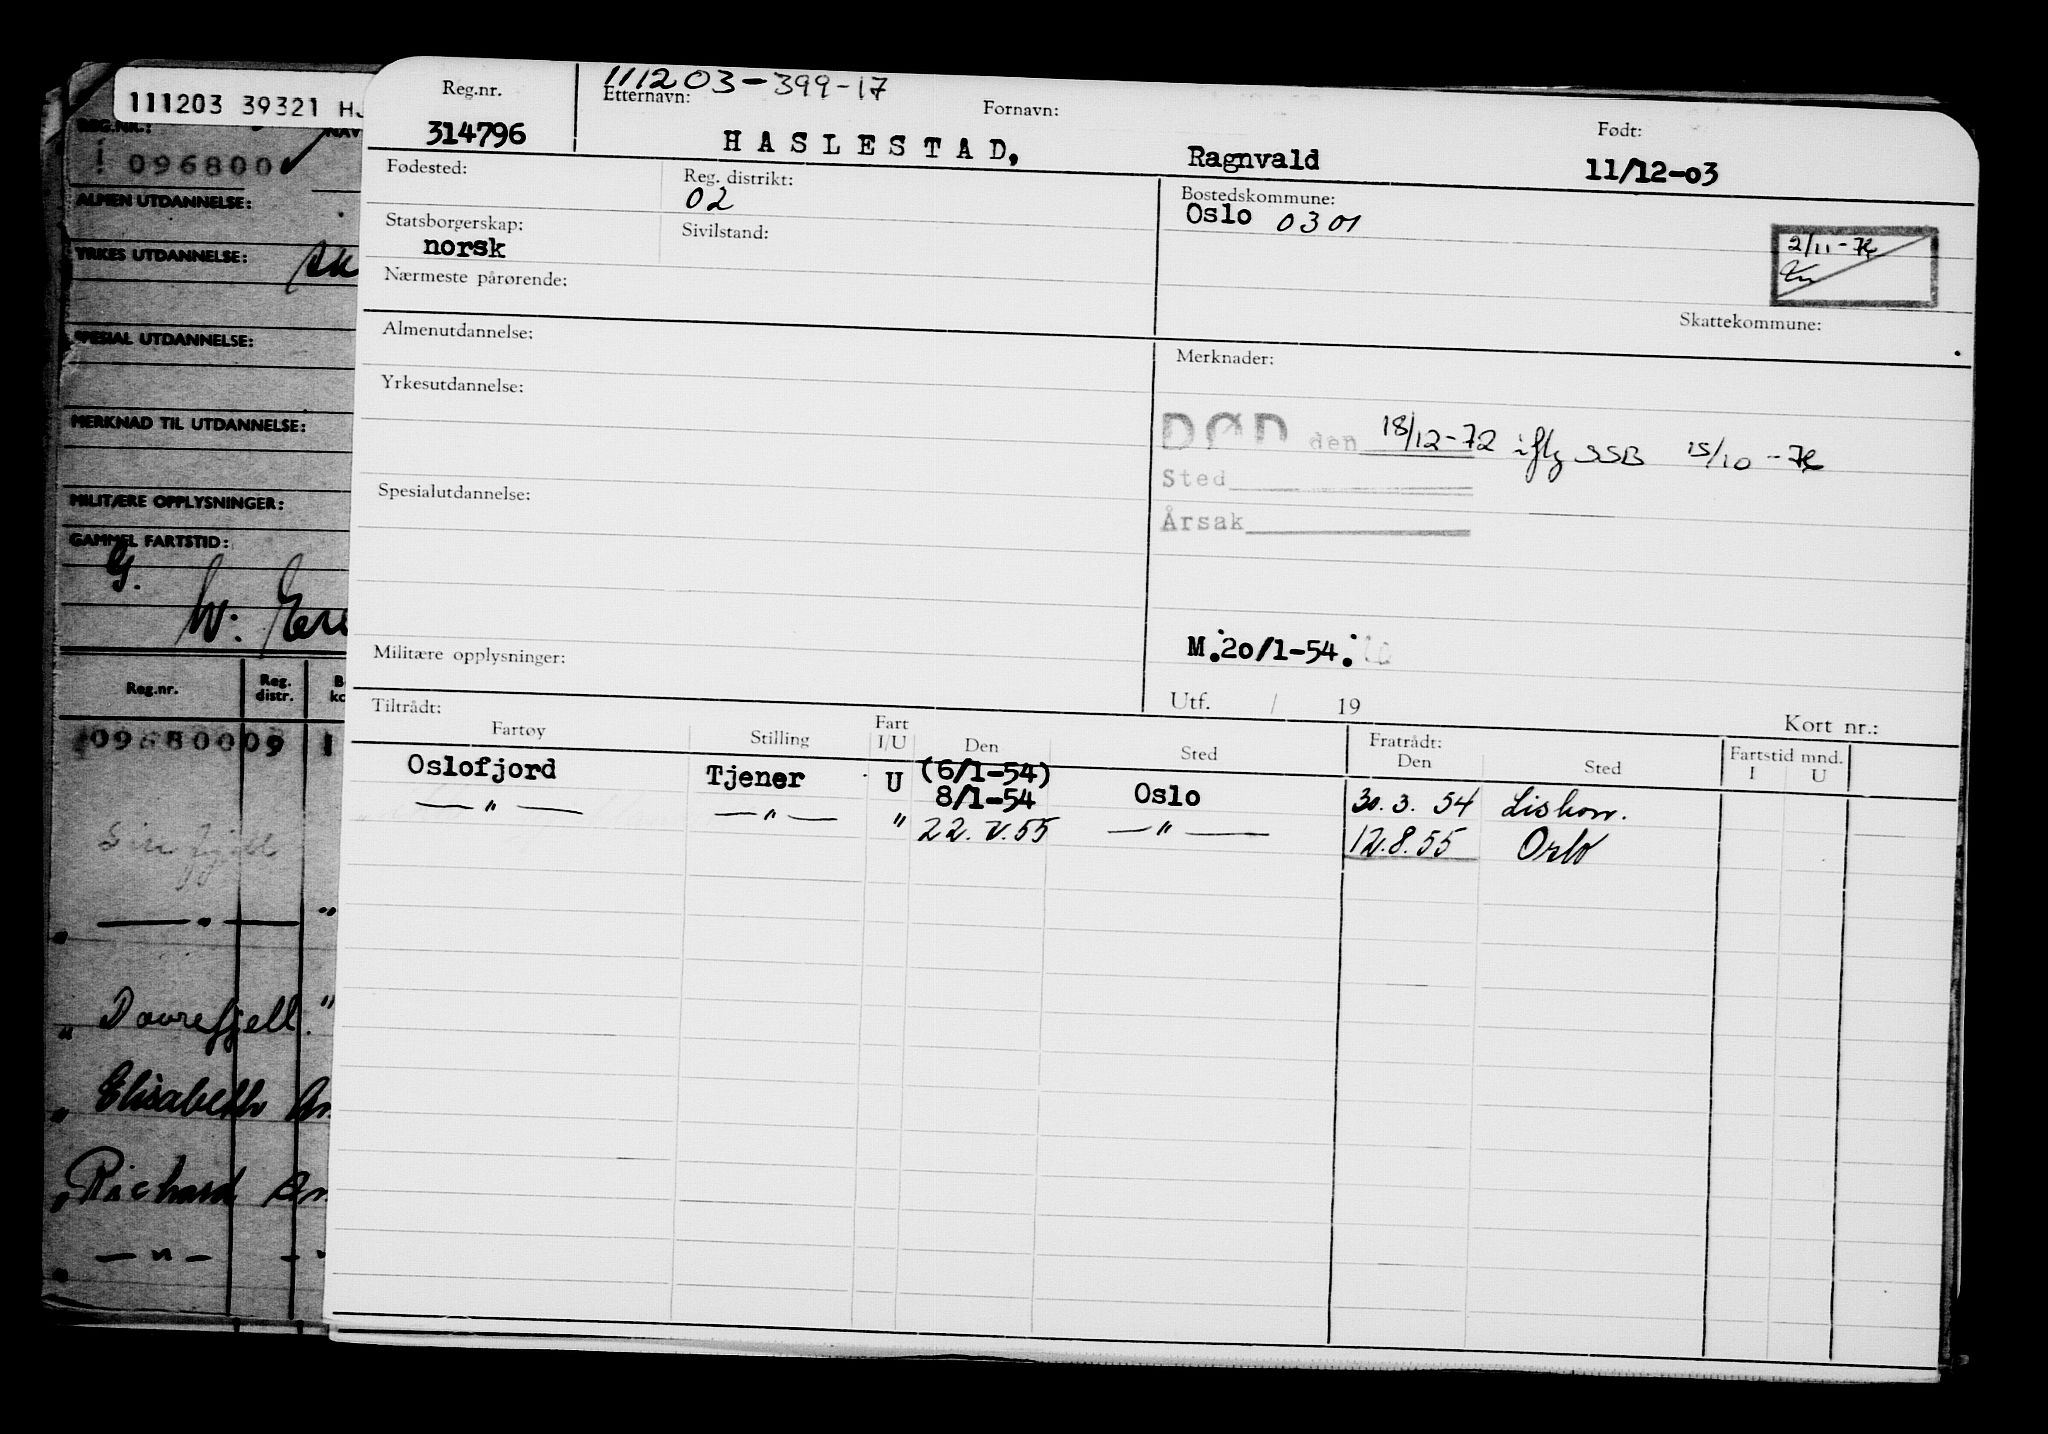 111203 39321 HJ
REG.NR.:
NAV
096800
ALMEN UTDANNELSE:
YRKES UTDANNELSE:
SPESIAL UTDANNELSE:
MERKNAD TIL UTDANNELSE:
MILITÆRE OPPLYSNINGER:
GAMMEL FARTSTID:
G.
W:
Reg.nr.
Reg. distr.
09680009 1
— " —
" Dovrefjell. "
" Elisabeth
" Richard
— " —
Reg.nr.
111203-399-17
Etternavn:
Fornavn:
Født:
314796
HASLESTAD,
Ragnvald
11/12-03
Fødested:
Reg. distrikt:
02
Bostedskommune:
Oslo 0301
Statsborgerskap:
norsk
Sivilstand:
2/11-74
Nærmeste pårørende:
Skattekommune:
Almenutdannelse:
Merknader:
Yrkesutdannelse:
DØD den 18/12-72 iflg SSB 15/10-74
Sted
Årsak
Spesialutdannelse:
M.20/1-54.
Militære opplysninger:
Utf. / 19
Kort nr.:
Tiltrådt:
Fartøy
Stilling
Fart I/U
Den
Sted
Fratrådt:
Den
Sted
Fartstid mnd.
I U
Oslofjord Tjener U (6/1-54)
8/1-54 Oslo 30.3.54
— " — — " — " 22.V.55 — " — 12.8.55 Oslo